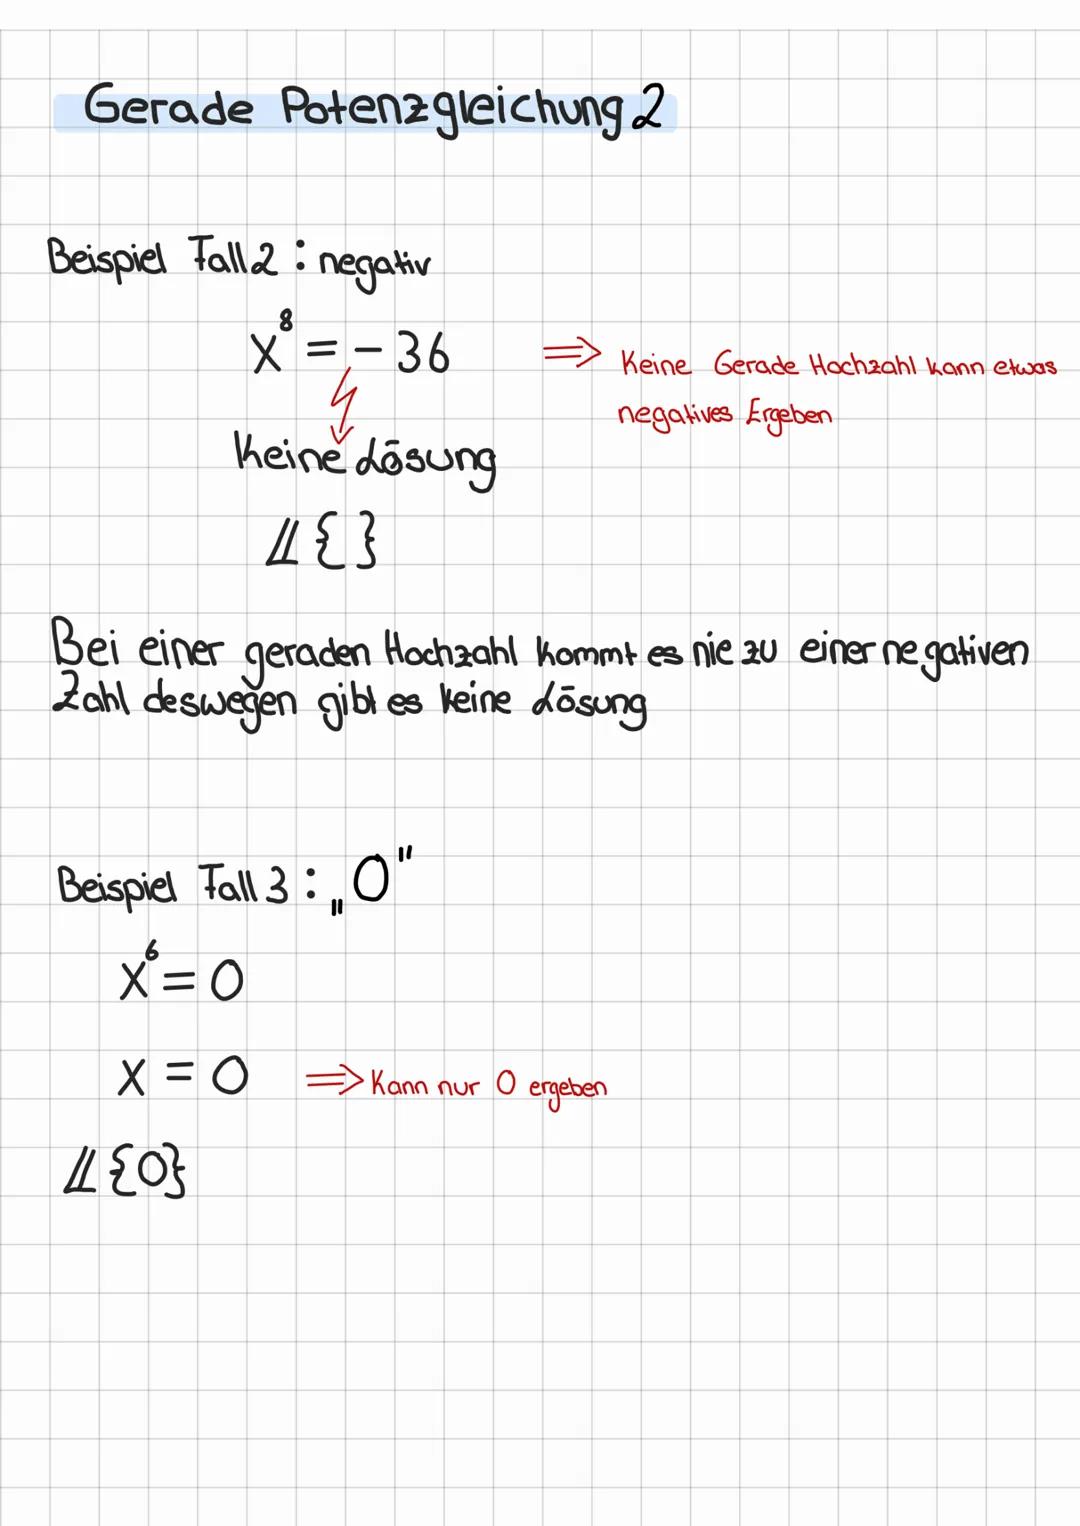 Gerade Potenzgleichung 2
Beispiel Fall 2 : negativ
x⁸ = - 36 ⟹ Keine Gerade Hochzahl kann etwas
negatives Ergeben
Keine Lösung
𝕃 { }
Bei einer geraden Hochzahl kommt es nie zu einer negativen
Zahl deswegen gibt es keine Lösung
Beispiel Fall 3 : „0"
x⁶ = 0
x = 0 ⟹ Kann nur 0 ergeben
𝕃 {0}